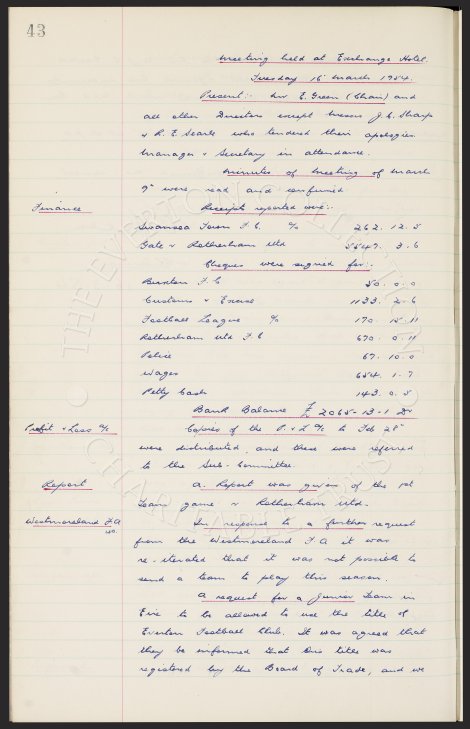 43
Meeting held at Exchange Hotel
Tuesday 16 March 1954.
Present:- Mr E. Green (Chair) and
all other Directors except Messrs J. C. Sharp
& R. E. Searle who tendered their apologies.
Manager & Secretary in attendance.
Minutes of meeting of March
9" were read and confirmed
Finance Receipts reported were:-
Swansea Town F. C. % 262. 12. 5
Gate v Rotherham Utd 5547. 3. 6
Cheques were signed for:-
Buxton F. C 50. 0. 0
Customs & Excise 1133. 2. 6
Football League % 170. 15. 11
Rotherham Utd F. C 670. 0. 11
Police 67. 10. 0
Wages 654. 1. 7
Petty Cash 143. 0. 5
Bank Balance £ 2065-13-1 Dr
Profit & Loss a/c Copies of the P. & L a/c to Feb 28"
were distributed, and these were referred
to the Sub-Committee.
Report A Report was given of the 1st
Team game v Rotherham Utd.
Westmoreland F.A In response to a further request
from the Westmoreland F A it was
re-iterated that it was not possible to
send a team to play this season.
A request for a Junior Team in
Eire to be allowed to use the title of
Everton Football Club. It was agreed that
they be informed that this title was
registered by the Board of Trade, and we
THE EVERTON COLLECTION
CHARITABLE TRUST